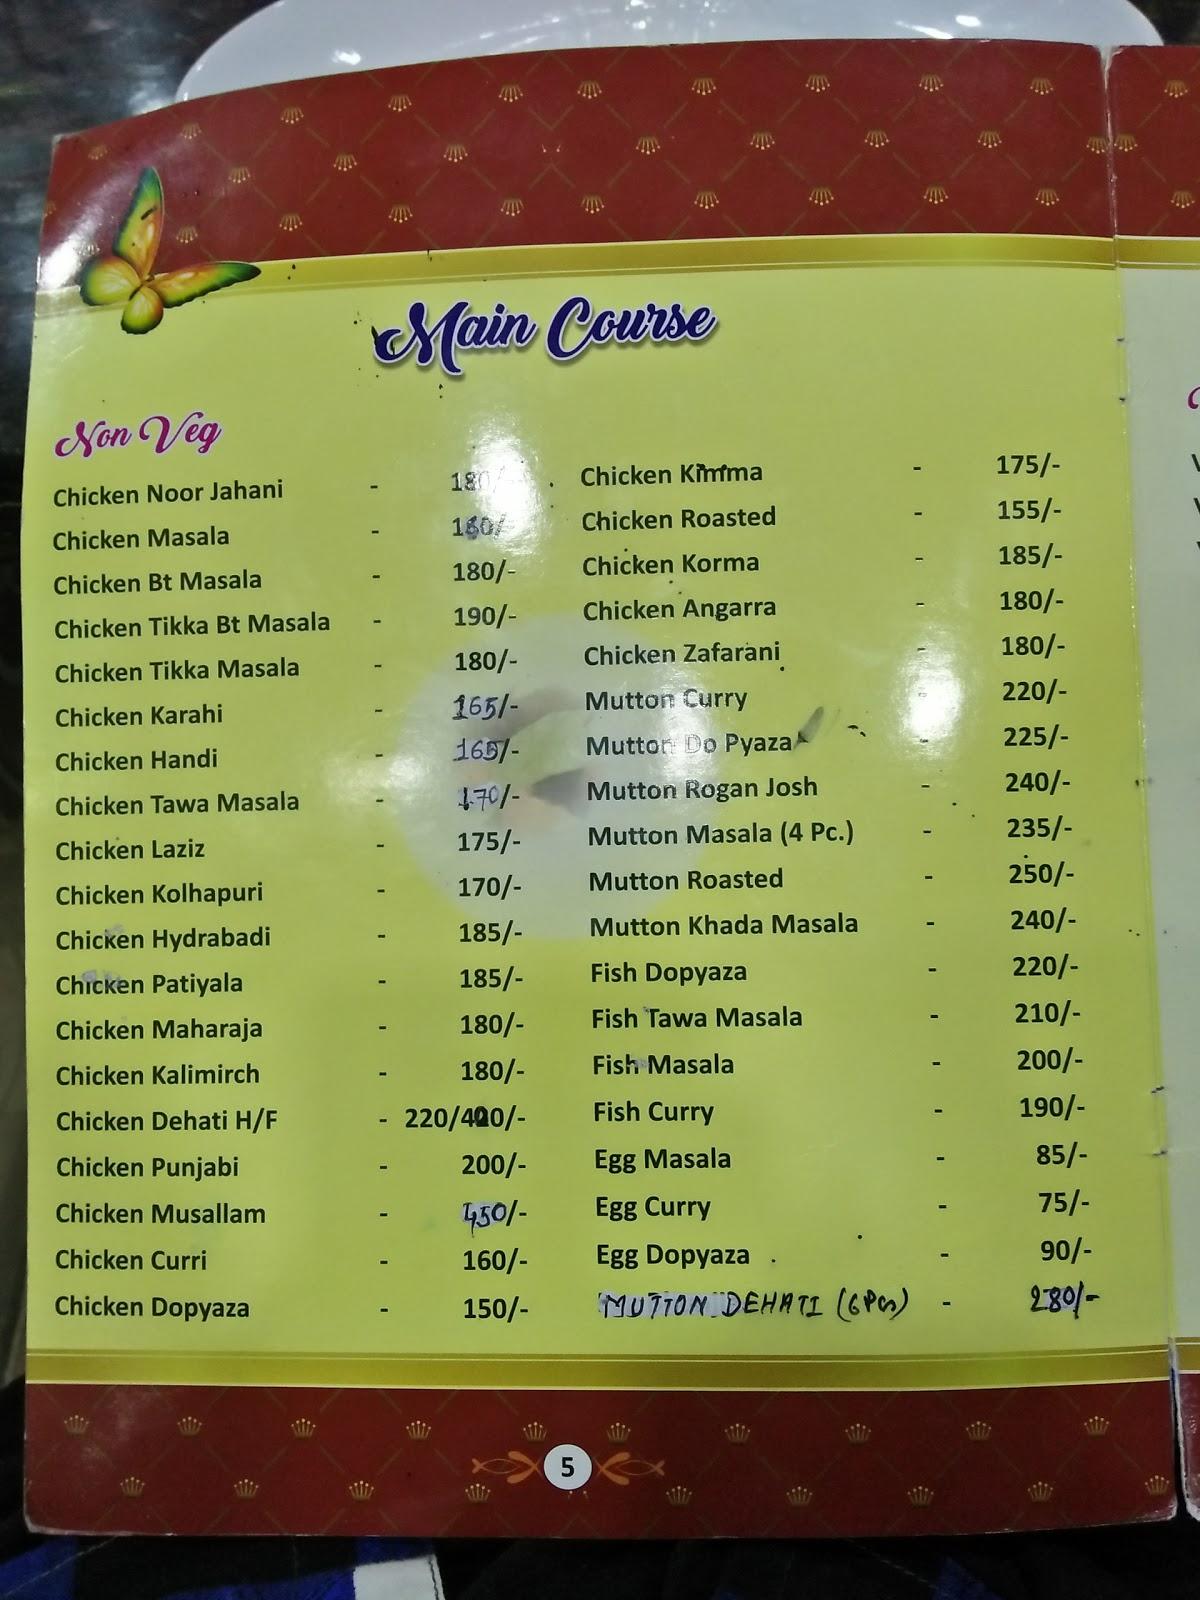 Main Course
Non Veg
Chicken Noor Jahani - 180/-
Chicken Masala - 160/-
Chicken Bt Masala - 180/-
Chicken Tikka Bt Masala - 190/-
Chicken Tikka Masala - 180/-
Chicken Karahi - 165/-
Chicken Handi - 165/-
Chicken Tawa Masala - 170/-
Chicken Laziz - 175/-
Chicken Kolhapuri - 170/-
Chicken Hydrabadi - 185/-
Chicken Patiyala - 185/-
Chicken Maharaja - 180/-
Chicken Kalimirch - 180/-
Chicken Dehati H/F - 220/400/-
Chicken Punjabi - 200/-
Chicken Musallam - 450/-
Chicken Curri - 160/-
Chicken Dopyaza - 150/-
Chicken Kimma - 175/-
Chicken Roasted - 155/-
Chicken Korma - 185/-
Chicken Angarra - 180/-
Chicken Zafarani - 180/-
Mutton Curry - 220/-
Mutton Do Pyaza - 225/-
Mutton Rogan Josh - 240/-
Mutton Masala (4 Pc.) - 235/-
Mutton Roasted - 250/-
Mutton Khada Masala - 240/-
Fish Dopyaza - 220/-
Fish Tawa Masala - 210/-
Fish Masala - 200/-
Fish Curry - 190/-
Egg Masala - 85/-
Egg Curry - 75/-
Egg Dopyaza - 90/-
MUTTON DEHATI (6 Pcs) - 280/-
5